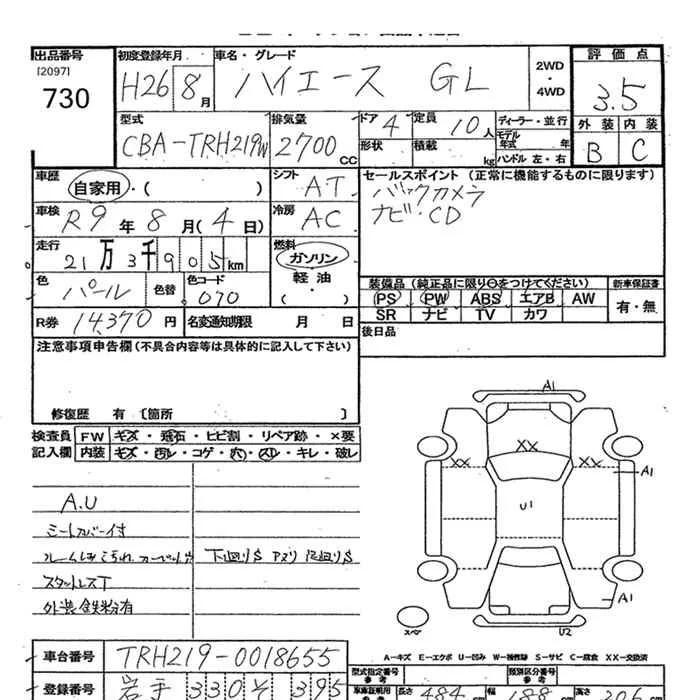 出品番号
[2097]
730
初度登録年月
H26 8月
車名・グレード
ハイエース GL
2WD
・
4WD
評価点
3.5
外装 内装
B C
型式
CBA-TRH219W
排気量
2700 CC
ドア 4
定員 10人
形状
積載 kg
ディーラー・並行
モデル年式 年
ハンドル 左・右
車歴
自家用・( )
シフト AT
セールスポイント (正常に機能するものに限ります)
バックカメラ
ナビ・CD
車検
R9年8月(4日)
冷房 AC
走行
21万3千905km
燃料
ガソリン
軽油
・( )
色
パール
色替
色コード
070
装備品 (純正品に限り○をつけてください)
PS PW ABS エアB AW
SR ナビ TV カワ
新車保証書
有・無
R券 14,370円
名変通知期限 月 日
後日品
注意事項申告欄(不具合内容等は具体的に記入して下さい)
修復歴 有 〔箇所 〕
検査員 FW キズ・飛石・ヒビ割・リペア跡・×要
記入欄 内装 キズ・汚レ・コゲ・穴・スレ・キレ・破レ
A.U
シートカバー付
スタットレスT
外装鉄粉有
A1
XX
XX XX
A1
U1
A1
スペア
U2
A-キズ E-エクボ U-凹み W-補修跡 S-サビ C-腐食 XX-交換済
車台番号 TRH219-0018655
登録番号 岩手 330 そ 395
型式指定番号
参考
類別区分番号
参考
車庫証明用
参考
長さ 484 cm 幅 188 cm 高さ 206 cm